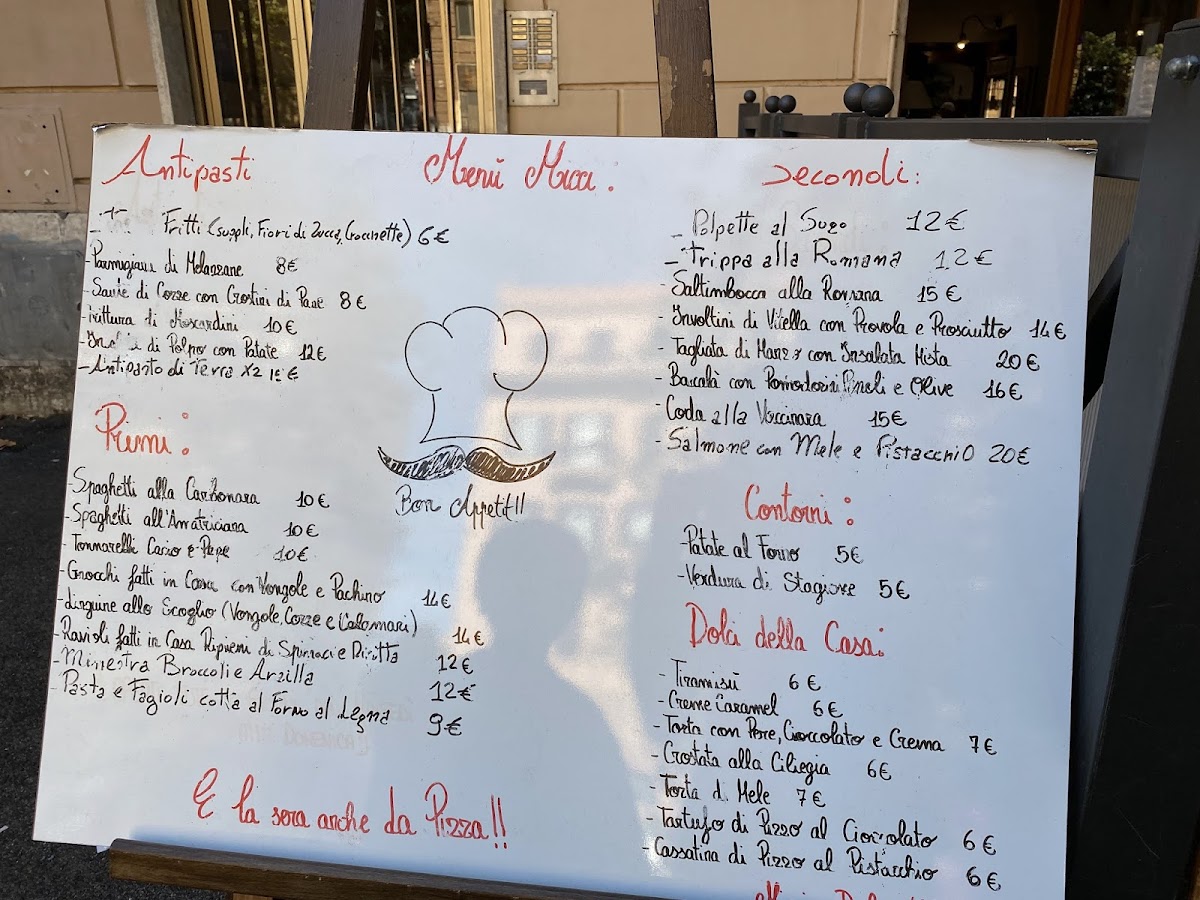 Menù Micci:
Antipasti
Fritti (supplì, Fiori di Zucca, Crocchette) 6€
- Parmigiana di Melanzane 8€
- Sautè di Cozze con Crostini di Pane 8€
- Frittura di Moscardini 10€
di Polpo con Patate 12€
- Antipasto di Terra x2
Primi:
- Spaghetti alla Carbonara 10€
- Spaghetti all'Amatriciana 10€
- Tonnarelli Cacio e Pepe 10€
- Gnocchi fatti in Casa con Vongole e Pachino 14€
- Linguine allo Scoglio (Vongole, Cozze e Calamari) 14€
- Ravioli fatti in Casa Ripieni di Spinaci e Ricotta 12€
- Minestra Broccoli e Arzilla 12€
- Pasta e Fagioli cotta al Forno al Legna 9€
E la sera anche da Pizza!!
Bon Appetit!!
Secondi:
- Polpette al Sugo 12€
- Trippa alla Romana 12€
- Saltimbocca alla Romana 15€
- Involtini di Vitella con Provola e Prosciutto 14€
- Tagliata di Manzo con Insalata Mista 20€
- Baccalà con Pomodorini Pinoli e Olive 16€
- Coda alla Vaccinara 15€
- Salmone con Mele e Pistacchio 20€
Contorni:
- Patate al Forno 5€
- Verdura di Stagione 5€
Dolci della Casa:
- Tiramisù 6€
- Creme Caramel 6€
- Torta con Pere, Cioccolato e Crema 7€
- Crostata alla Ciliegia 6€
- Torta di Mele 7€
- Tartufo di Pizzo al Cioccolato 6€
- Cassatina di Pizzo al Pistacchio 6€